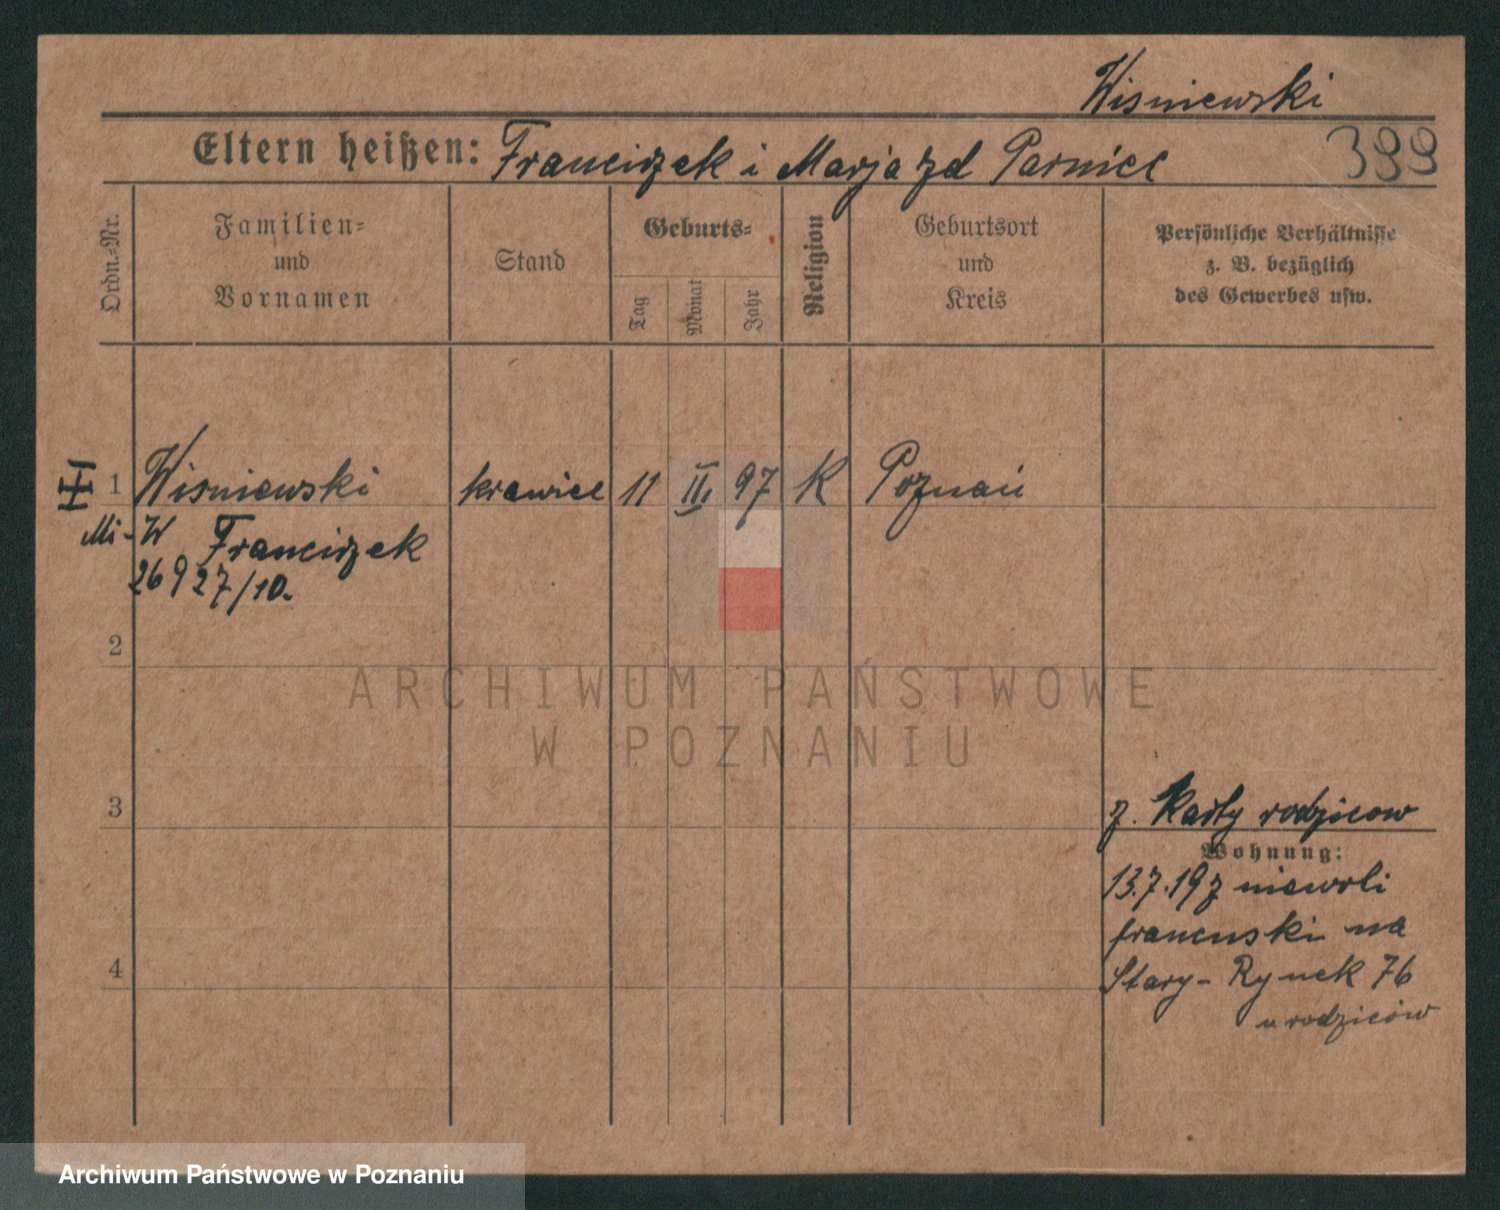 Wisniewski
399
Eltern heißen: Franciszek i Marja zd Parniec
Ordn.-Nr.
Familien-
und
Vornamen
Stand
Geburts-
Tag
Monat
Jahr
Religion
Geburtsort
und
Kreis
Persönliche Verhältnisse
z. B. bezüglich
des Gewerbes usw.
1 Wisniewski krawiec 11 II. 97 K Poznań
Mi-W Franciszek
26927/10.
2
3
z. Karty rodziców
Wohnung:
13.7.19 z niewoli
francuski na
4
Stary-Rynek 76
u rodziców
ARCHIWUM PAŃSTWOWE
W POZNANIU
Archiwum Państwowe w Poznaniu